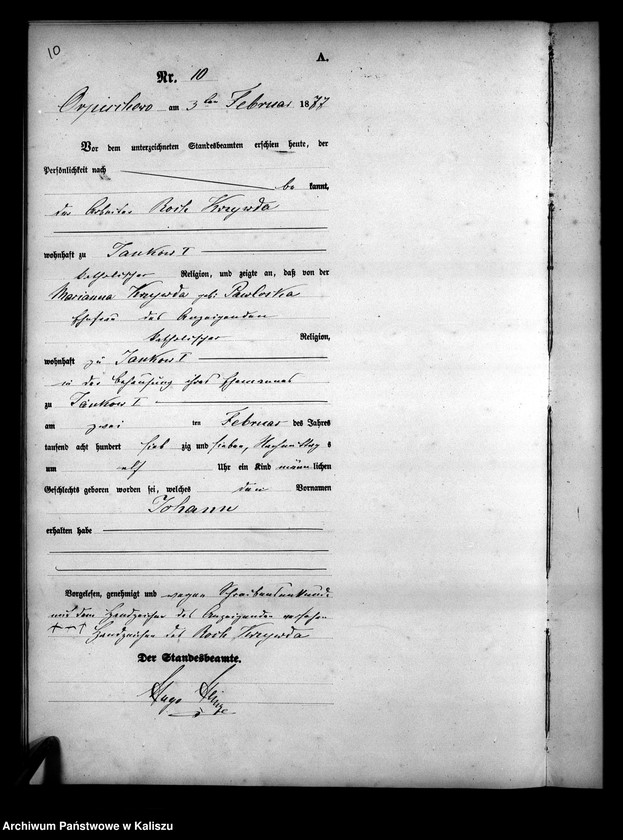 10
A.
Nr. 10
am 3ten Februar 1877
Vor dem unterzeichneten Standesbeamten erschien heute, der
Persönlichkeit nach
be kannt,
der Arbeiter Roch Krzywda
wohnhaft zu Jankow I
katholischer Religion, und zeigte an, daß von der
Marianna Krzywda geb. Pawloska
Ehefrau des Anzeigenden
katholischer Religion,
wohnhaft zu Jankow I
in der Behausung ihres Ehemannes
zu Jankow I
am zwei ten Februar des Jahres
tausend acht hundert sieb zig und sieben, Nachmittag s
um elf Uhr ein Kind männ lichen
Geschlechts geboren worden sei, welches den Vornamen
Johann
erhalten habe
Vorgelesen, genehmigt und wegen Schreibensunkunde
mit dem Handzeichen des Anzeigenden versehen
+++ Handzeichen des Roch Krzywda
Der Standesbeamte.
Hugo
Archiwum Państwowe w Kaliszu